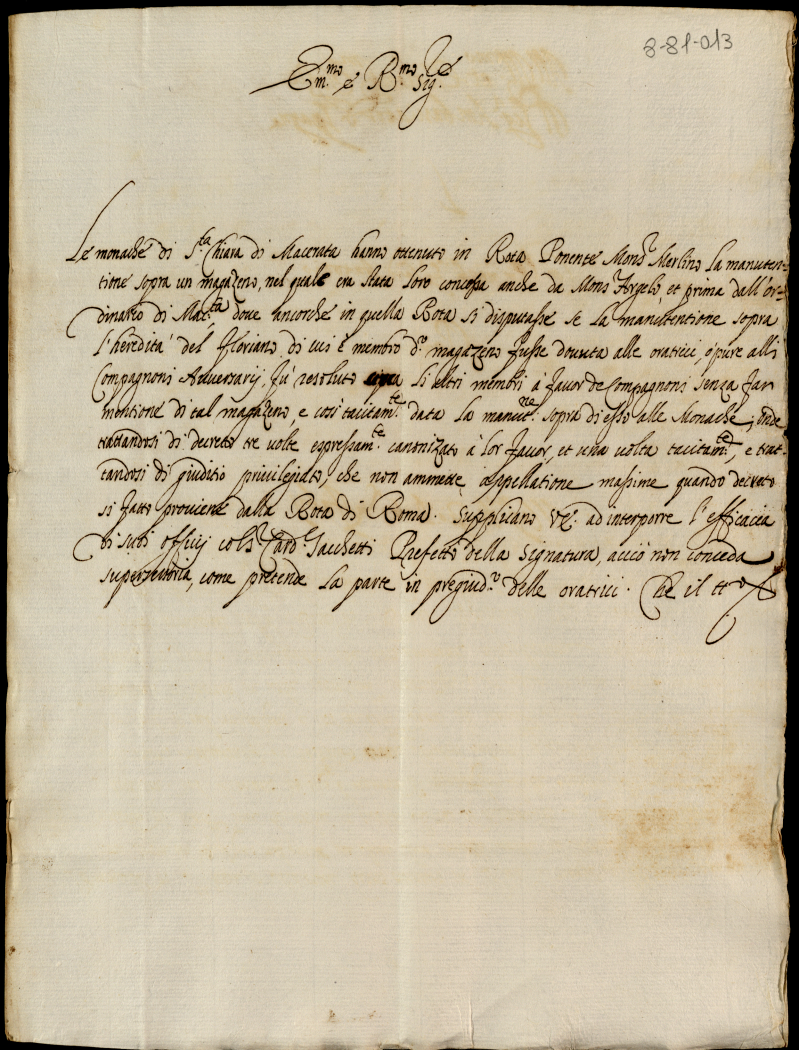 8-81-013
Em.mo e R.mo Sig.re
Le monache di S.ta Chiara di Macerata hanno ottenuto in Rota Ponente Mons.r Merlino la manuten-
tione sopra un magazeno, nel quale era stata loro concessa anche da Mons.r Argeli, et prima dall'or-
dinario di Mac.ta dove ancorche in quella Rota si disputasse se la manutentione sopra
l'heredità del Floriano, di cui è membro d.o magazeno fusse dovuta alle oratrici, ò pure alli
Compagnoni Adversarij, fù resoluto li altri membri à favor de Compagnoni senza far
mentione di tal magazeno, e così tacitam.te data la manut.ne sopra di esso alle Monache; onde
trattandosi di decreto tre volte espressam.te canonizato à lor favor, et una volta tacitam.te, e trat-
tandosi di giuditio privilegiato, che non ammette appellatione massime quando decreto
si fatto proviene dalla Rota di Roma. Supplicano V.E. ad interporre l'efficacia
di suoi officij col S.r Card.le Sacchetti Prefetto della Signatura, acciò non conceda
supersessoria, come pretende la parte in pregiud.o delle oratrici. Che il tt.o